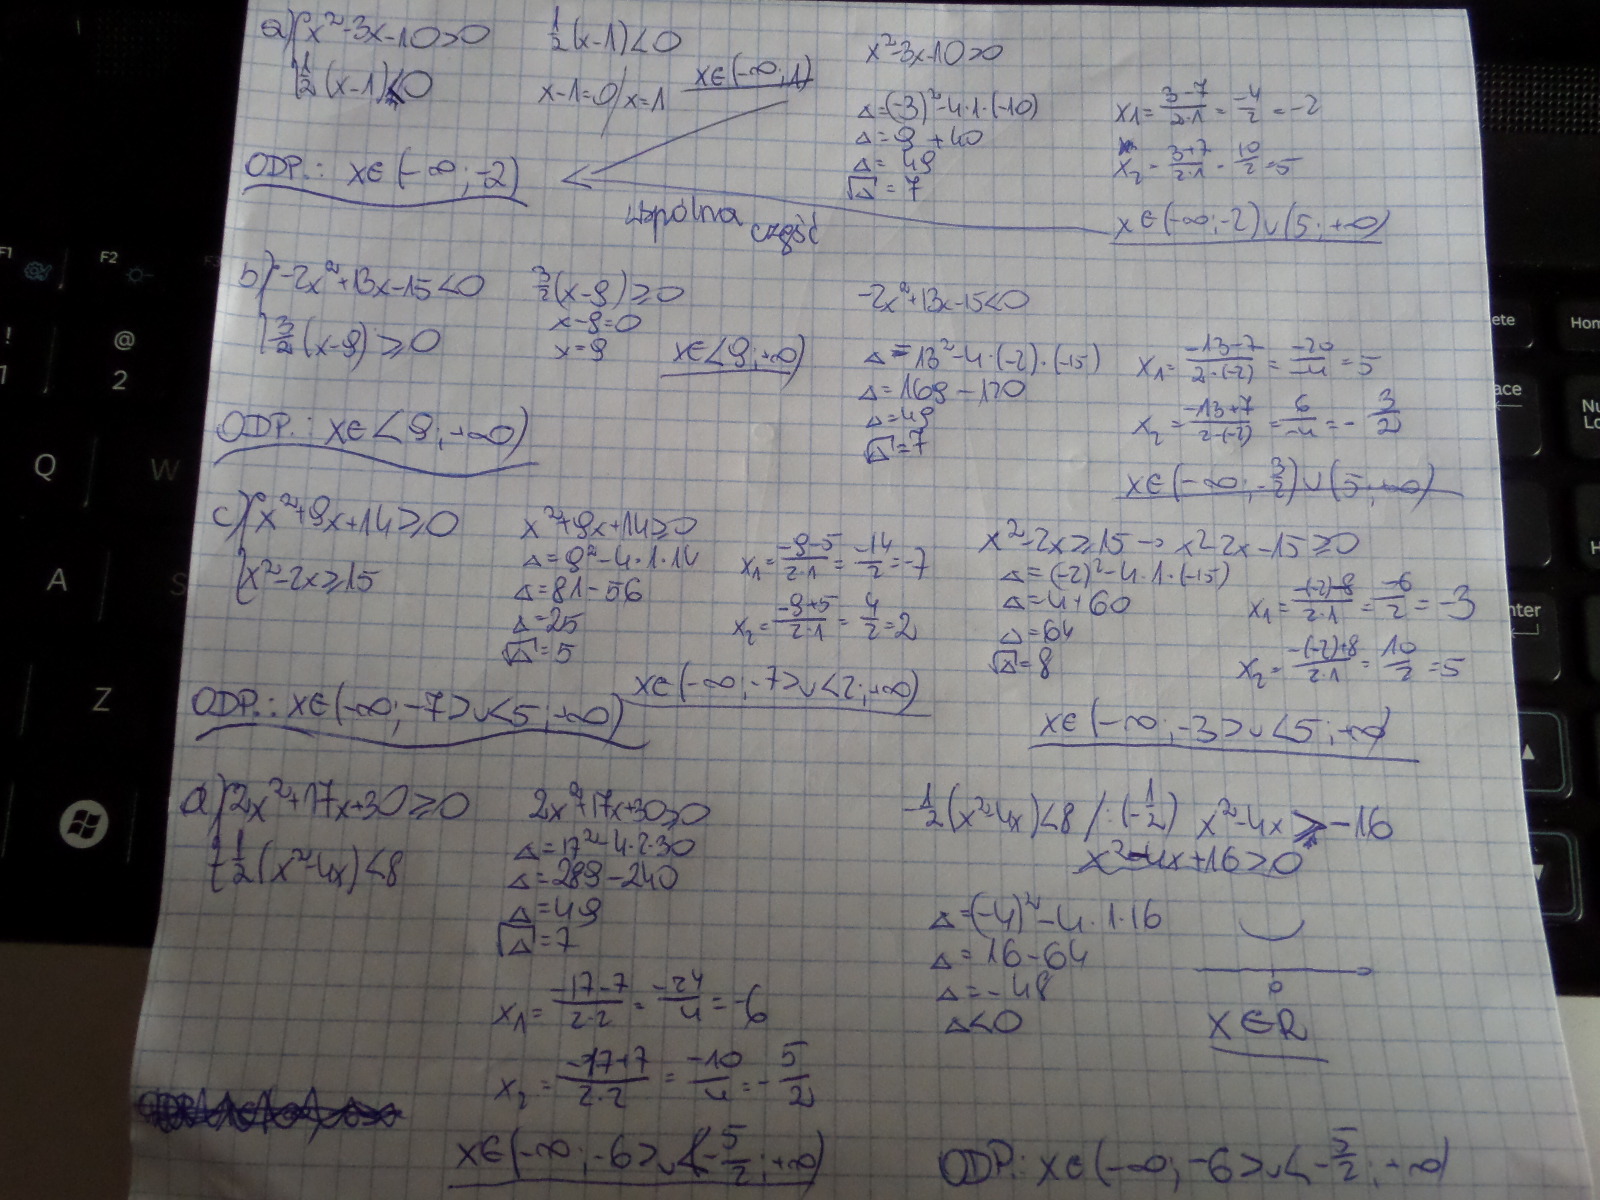 a) { x²-3x-10>0
½(x-1)<0
½(x-1)<0
x-1=0 / x=1
x∈(-∞;1)
ODP.: x∈(-∞;-2)
wspólna część
x²-3x-10>0
Δ=(-3)²-4·1·(-10)
Δ=9+40
Δ=49
√Δ=7
x₁=(3-7)/(2·1)=-4/2=-2
x₂=(3+7)/(2·1)=10/2=5
x∈(-∞;-2)∪(5;+∞)
b) { -2x²+13x-15<0
3/2(x-9)≥0
3/2(x-9)≥0
x-9=0
x=9
x∈<9;+∞)
ODP.: x∈<9;+∞)
-2x²+13x-15<0
Δ=13²-4·(-2)·(-15)
Δ=169-120
Δ=49
√Δ=7
x₁=(-13-7)/(2·(-2))=-20/-4=5
x₂=(-13+7)/(2·(-2))=6/-4=-3/2
x∈(-∞;-3/2)∪(5;+∞)
c) { x²+9x+14≥0
x²-2x≥15
x²+9x+14≥0
Δ=9²-4·1·14
Δ=81-56
Δ=25
√Δ=5
x₁=(-9-5)/(2·1)=-14/2=-7
x₂=(-9+5)/(2·1)=4/2=2
x∈(-∞;-7>∪<2;+∞)
x²-2x≥15→x²-2x-15≥0
Δ=(-2)²-4·1·(-15)
Δ=4+60
Δ=64
√Δ=8
x₁=(-(-2)-8)/(2·1)=-6/2=-3
x₂=(-(-2)+8)/(2·1)=10/2=5
x∈(-∞;-3>∪<5;+∞)
ODP.: x∈(-∞;-7>∪<5;+∞)
d) { 2x²+17x+30≥0
-½(x²-4x)<8
2x²+17x+30≥0
Δ=17²-4·2·30
Δ=289-240
Δ=49
√Δ=7
x₁=(-17-7)/(2·2)=-24/4=-6
x₂=(-17+7)/(2·2)=-10/4=-5/2
x∈(-∞;-6>∪<-5/2;+∞)
-½(x²-4x)<8 /:(-½) x²-4x>-16
x²-4x+16>0
Δ=(-4)²-4·1·16
Δ=16-64
Δ=-48
Δ<0
0
x∈R
ODP.: x∈(-∞;-6>∪<-5/2;+∞)
F1
F2
!
1
@
2
Q
W
A
S
Z
Hom